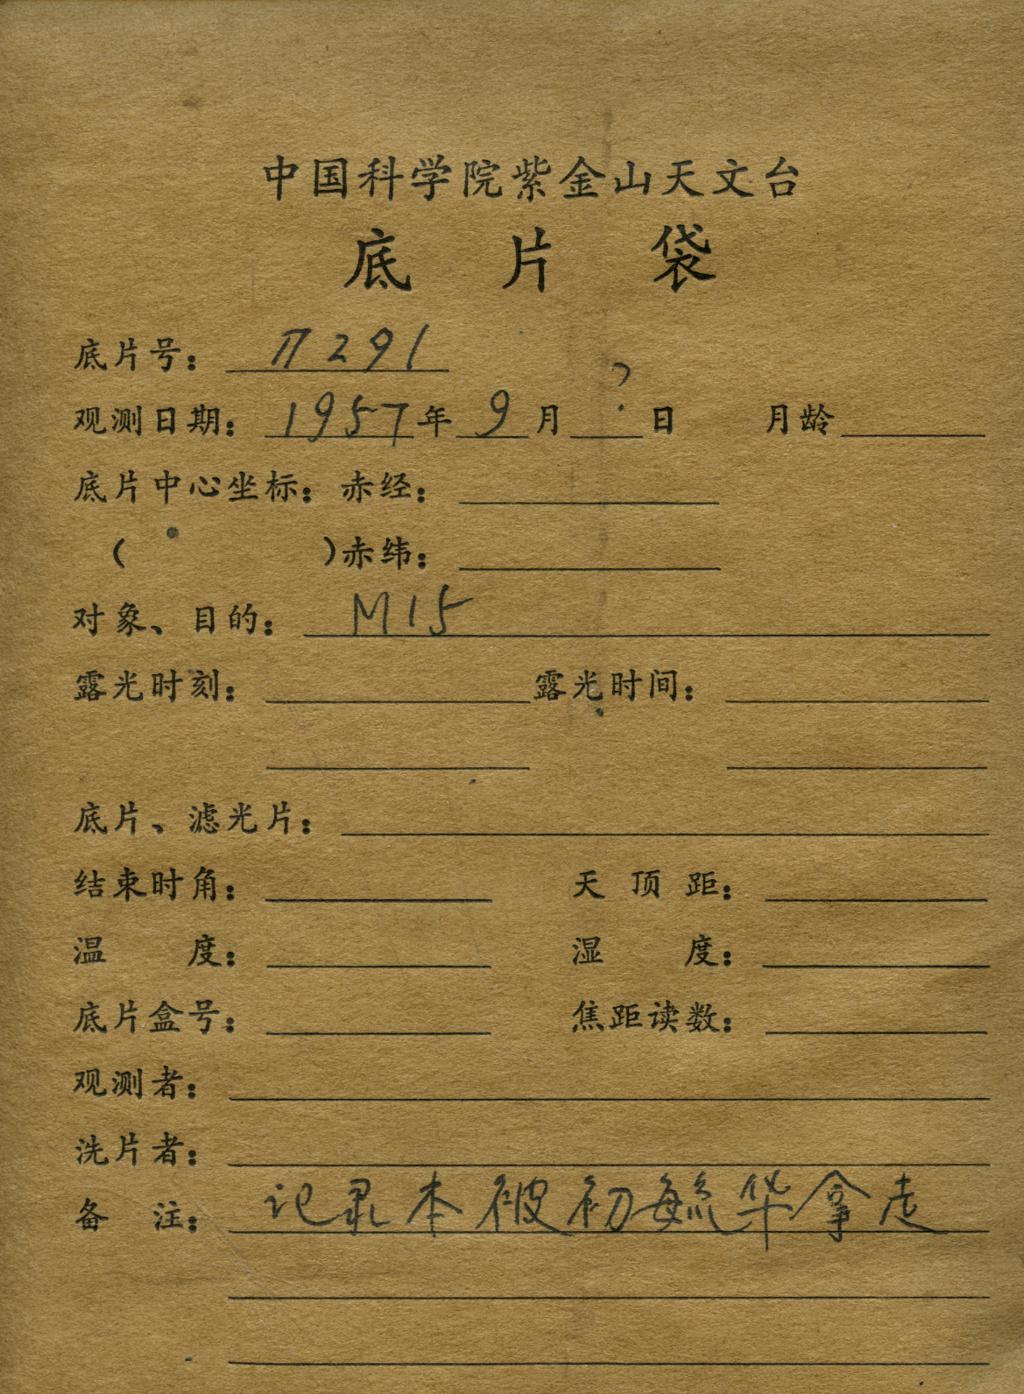 中国科学院紫金山天文台
底片袋
底片号： П291
观测日期： 1957年 9月 ?日 月龄
底片中心坐标：赤经：
( )赤纬：
对象、目的： M15
露光时刻： 露光时间：
底片、滤光片：
结束时角： 天顶距：
温度： 湿度：
底片盒号： 焦距读数：
观测者：
洗片者：
备注： 记录本被初毓华拿走